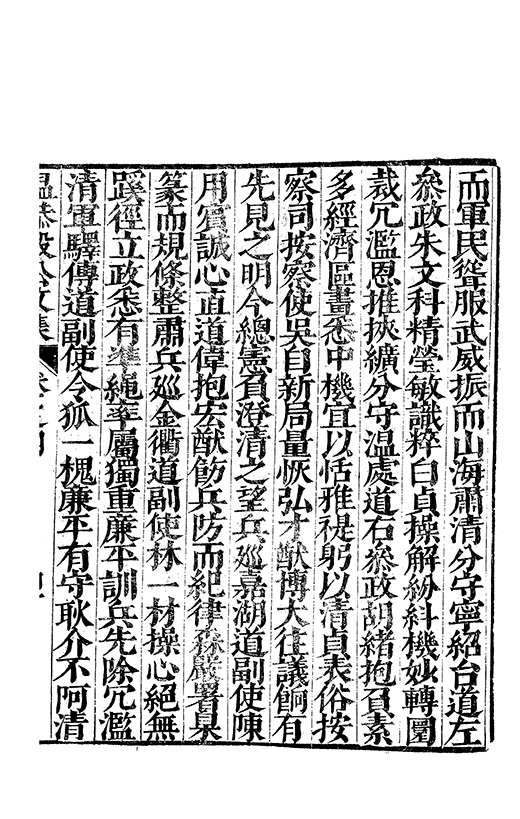 而軍民聳服武威振而山海肅清分守寧紹台道左
叅政朱文科精瑩敏識粹白貞操解紛紏機妙轉圜
裁冗濫恩推挾纊分守溫處道右叅政胡緒抱負素
多經濟區畫悉中機宜以恬雅禔躬以清貞表俗按
察司按察使吳自新局量恢弘才猷博大往議餉有
先見之明今總憲負澄清之望兵巡嘉湖道副使陳
用賓誠心直道偉抱宏猷飭兵防而紀律森嚴署臬
篆而規條整肅兵巡金衢道副使林一材操心絕無
蹊徑立政悉有準繩率屬獨重廉平訓兵先除冗濫
清軍驛傳道副使令狐一槐廉平有守耿介不阿清
溫恭毅公文集 卷之四